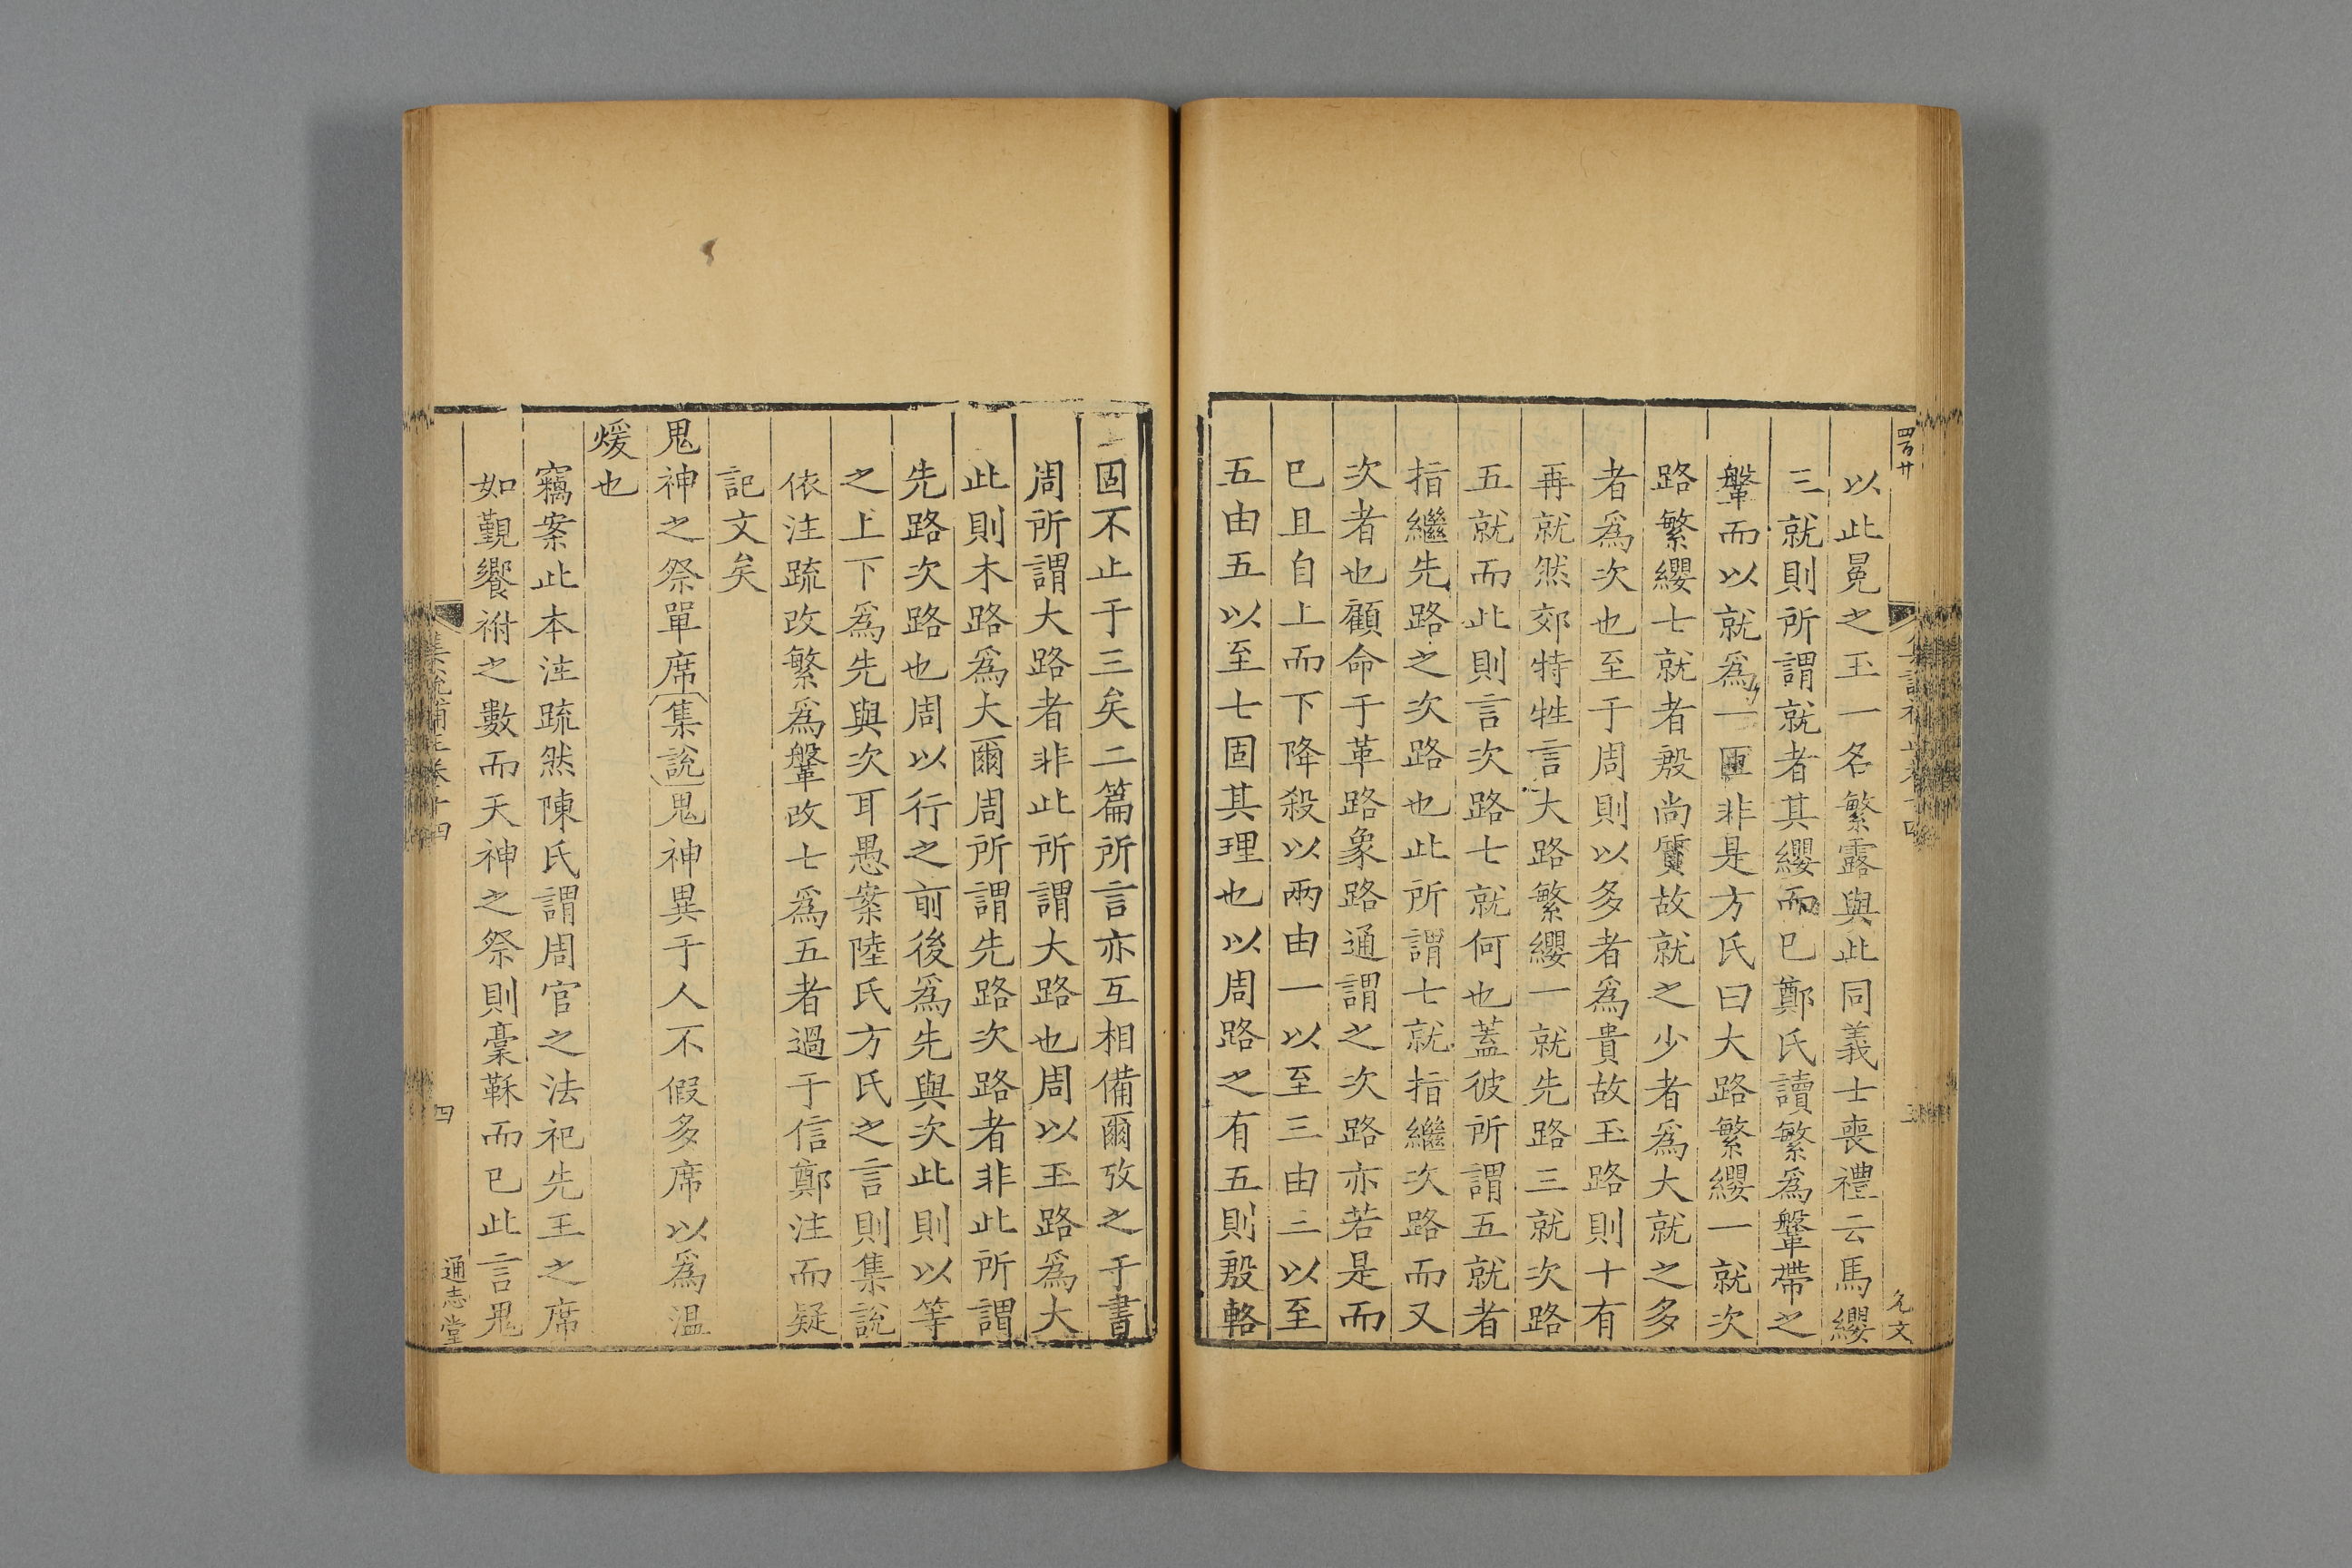 四百廿
以此冕之玉一名繁露與此同義士喪禮云馬纓
三就則所謂就者其纓而巳鄭氏讀繁爲鞶帶之
鞶而以就爲一匝非是方氏曰大路繁纓一就次
路繁纓七就者殷尚質故就之少者爲大就之多
者爲次也至于周則以多者爲貴故玉路則十有
再就然郊特牲言大路繁纓一就先路三就次路
五就而此則言次路七就何也蓋彼所謂五就者
指繼先路之次路也此所謂七就指繼次路而又
次者也顧命于革路象路通謂之次路亦若是而
巳且自上而下降殺以兩由一以至三由三以至
五由五以至七固其理也以周路之有五則殷輅
固不止于三矣二篇所言亦互相備爾攷之于書
周所謂大路者非此所謂大路也周以玉路爲大
此則木路爲大爾周所謂先路次路者非此所謂
先路次路也周以行之前後爲先與次此則以等
之上下爲先與次耳愚案陸氏方氏之言則集說
依注疏改繁爲鞶改七爲五者過于信鄭注而疑
記文矣
鬼神之祭單席集說鬼神異于人不假多席以爲温
煖也
竊案此本注疏然陳氏謂周官之法祀先王之席
如覲饗祔之數而天神之祭則稾鞂而巳此言鬼
集說補正卷十四
四
通志堂